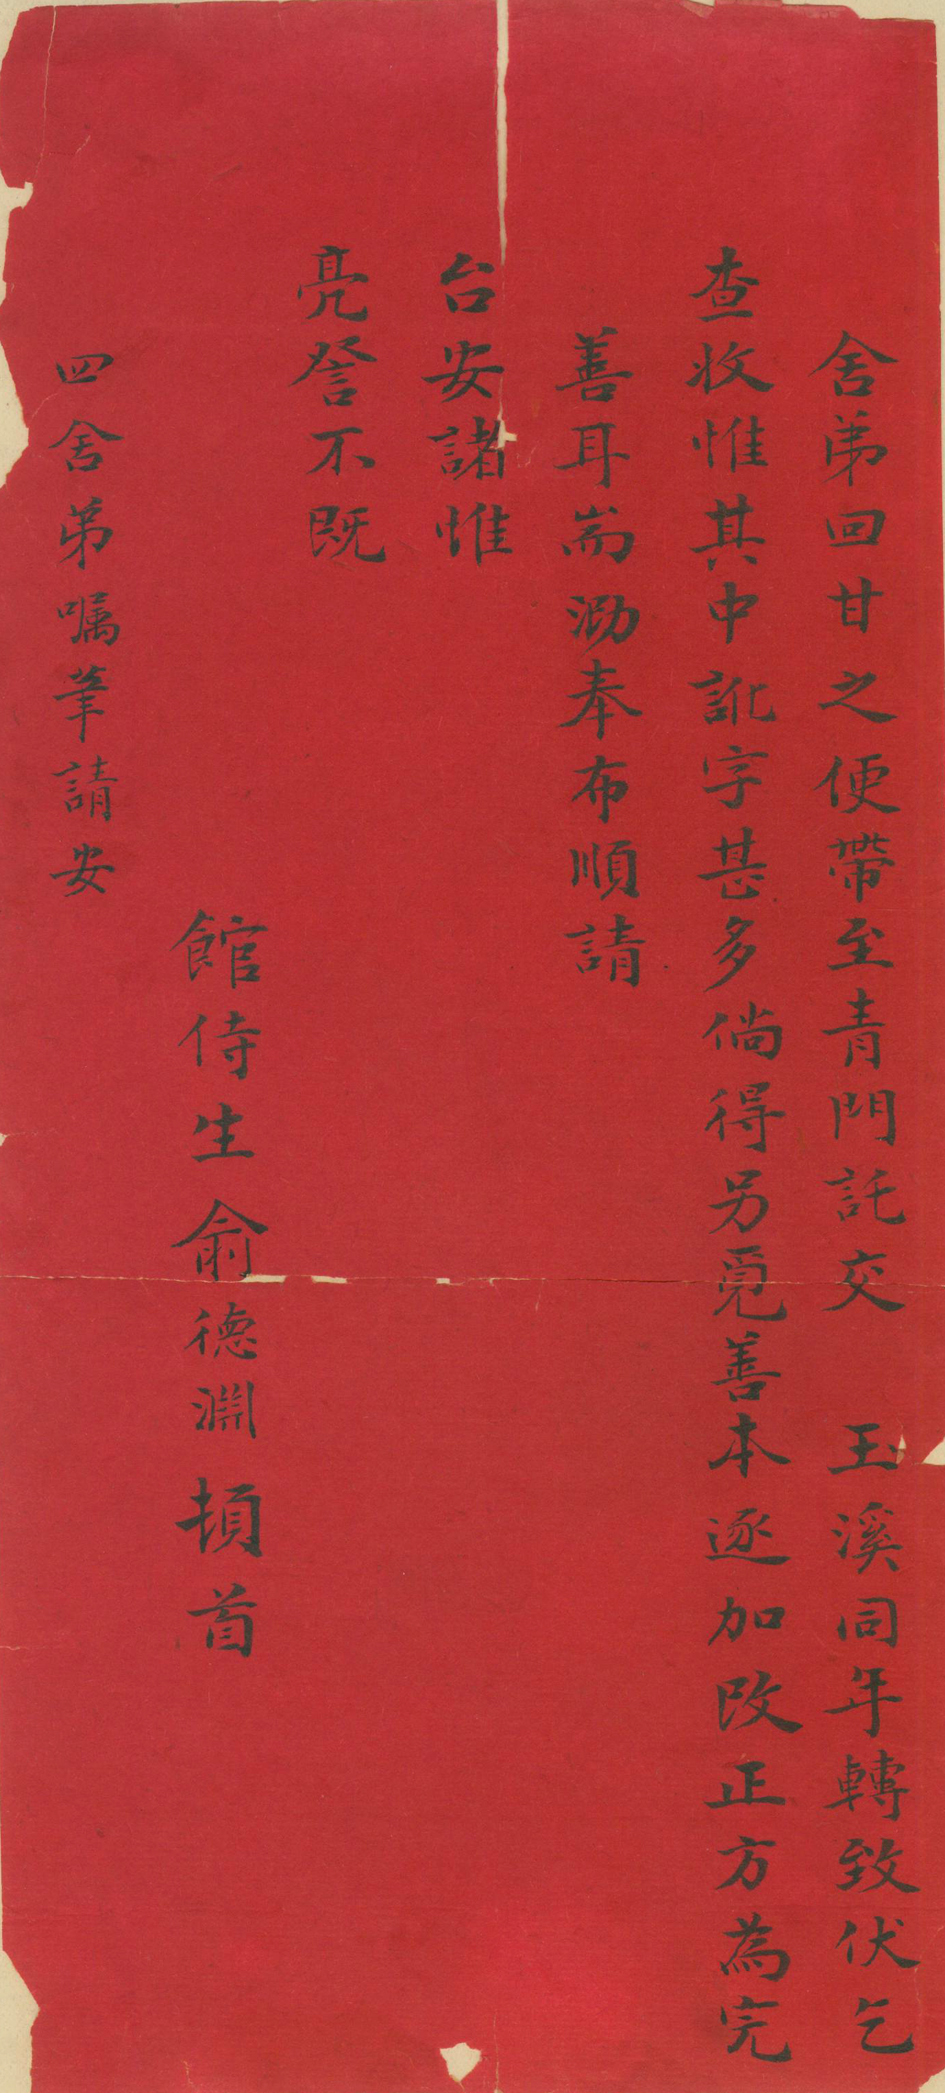 舍弟回甘之便帶至青門託交　玉溪同年轉致伏乞
查收惟其中訛字甚多倘得另覓善本逐加改正方為完
善耳耑泐奉布順請
台安諸惟
亮詧不既
館侍生俞德淵頓首
四舍弟囑筆請安